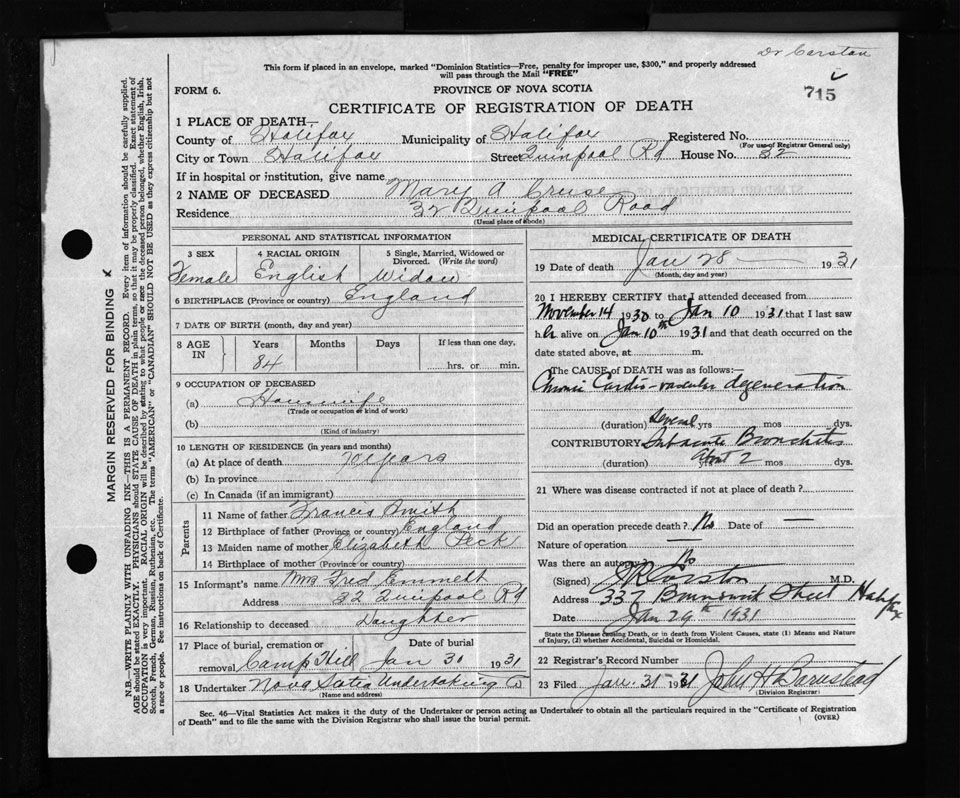 Dr Carston
This form if placed in an envelope, marked "Dominion Statistics—Free, penalty for improper use, $300," and properly addressed
will pass through the Mail "FREE"
715
FORM 6. PROVINCE OF NOVA SCOTIA
CERTIFICATE OF REGISTRATION OF DEATH
1 PLACE OF DEATH—
County of Halifax Municipality of Halifax Registered No.
(For use of Registrar General only)
City or Town Halifax Street Quinpool Rd House No. 32
If in hospital or institution, give name
2 NAME OF DECEASED Mary A Cruse
Residence 32 Quinpool Road
(Usual place of abode)
PERSONAL AND STATISTICAL INFORMATION
3 SEX 4 RACIAL ORIGIN 5 Single, Married, Widowed or Divorced. (Write the word)
Female English Widow
6 BIRTHPLACE (Province or country) England
7 DATE OF BIRTH (month, day and year)
8 AGE IN Years Months Days If less than one day,
84 hrs. or min.
9 OCCUPATION OF DECEASED
(a) Housewife
(Trade or occupation or kind of work)
(b)
(Kind of industry)
10 LENGTH OF RESIDENCE (in years and months)
(a) At place of death 70 years
(b) In province
(c) In Canada (if an immigrant)
Parents
11 Name of father Francis Smith
12 Birthplace of father (Province or country) England
13 Maiden name of mother Elizabeth Peck
14 Birthplace of mother (Province or country)
15 Informant's name Mrs Fred Emmett
Address 32 Quinpool Rd
16 Relationship to deceased Daughter
17 Place of burial, cremation or removal Camp Hill Date of burial Jan 30 1931
18 Undertaker Nova Scotia Undertaking Co
(Name and address)
MEDICAL CERTIFICATE OF DEATH
19 Date of death Jan 28 — 1931
(Month, day and year)
20 I HEREBY CERTIFY that I attended deceased from
November 14 1930 to Jan 10 1931 that I last saw
her alive on Jan 10th 1931 and that death occurred on
date stated above, at m.
The CAUSE OF DEATH was as follows:—
Chronic Cardio-vascular degeneration
(duration) several yrs mos dys.
CONTRIBUTORY Subacute Bronchitis
(duration) about 2 mos dys.
21 Where was disease contracted if not at place of death?
Did an operation precede death? No Date of —
Nature of operation —
Was there an autopsy No
(Signed) Carston M.D.
Address 337 Brunswick Street Halifax
Date Jan 29th 1931
State the Disease causing Death, or in death from Violent Causes, state (1) Means and Nature
of Injury, (2) whether Accidental, Suicidal or Homicidal.
22 Registrar's Record Number
23 Filed Jan. 31 1931 John H Barnstead
(Division Registrar)
Sec. 46—Vital Statistics Act makes it the duty of the Undertaker or person acting as Undertaker to obtain all the particulars required in the "Certificate of Registration
of Death" and to file the same with the Division Registrar who shall issue the burial permit.
(OVER)
MARGIN RESERVED FOR BINDING
N.B.—WRITE PLAINLY WITH UNFADING INK—THIS IS A PERMANENT RECORD. Every item of information should be carefully supplied.
AGE should be stated EXACTLY. PHYSICIANS should STATE CAUSE OF DEATH in plain terms, so that it may be properly classified. Exact statement of
OCCUPATION is very important. RACIAL ORIGIN will be described by stating to what people or race the deceased person belonged, whether English, Irish,
Scotch, French, German, Russian, Ruthenian, etc. The terms "AMERICAN" or "CANADIAN" SHOULD NOT BE USED as they express citizenship but not
a race or people. See instructions on back of Certificate.